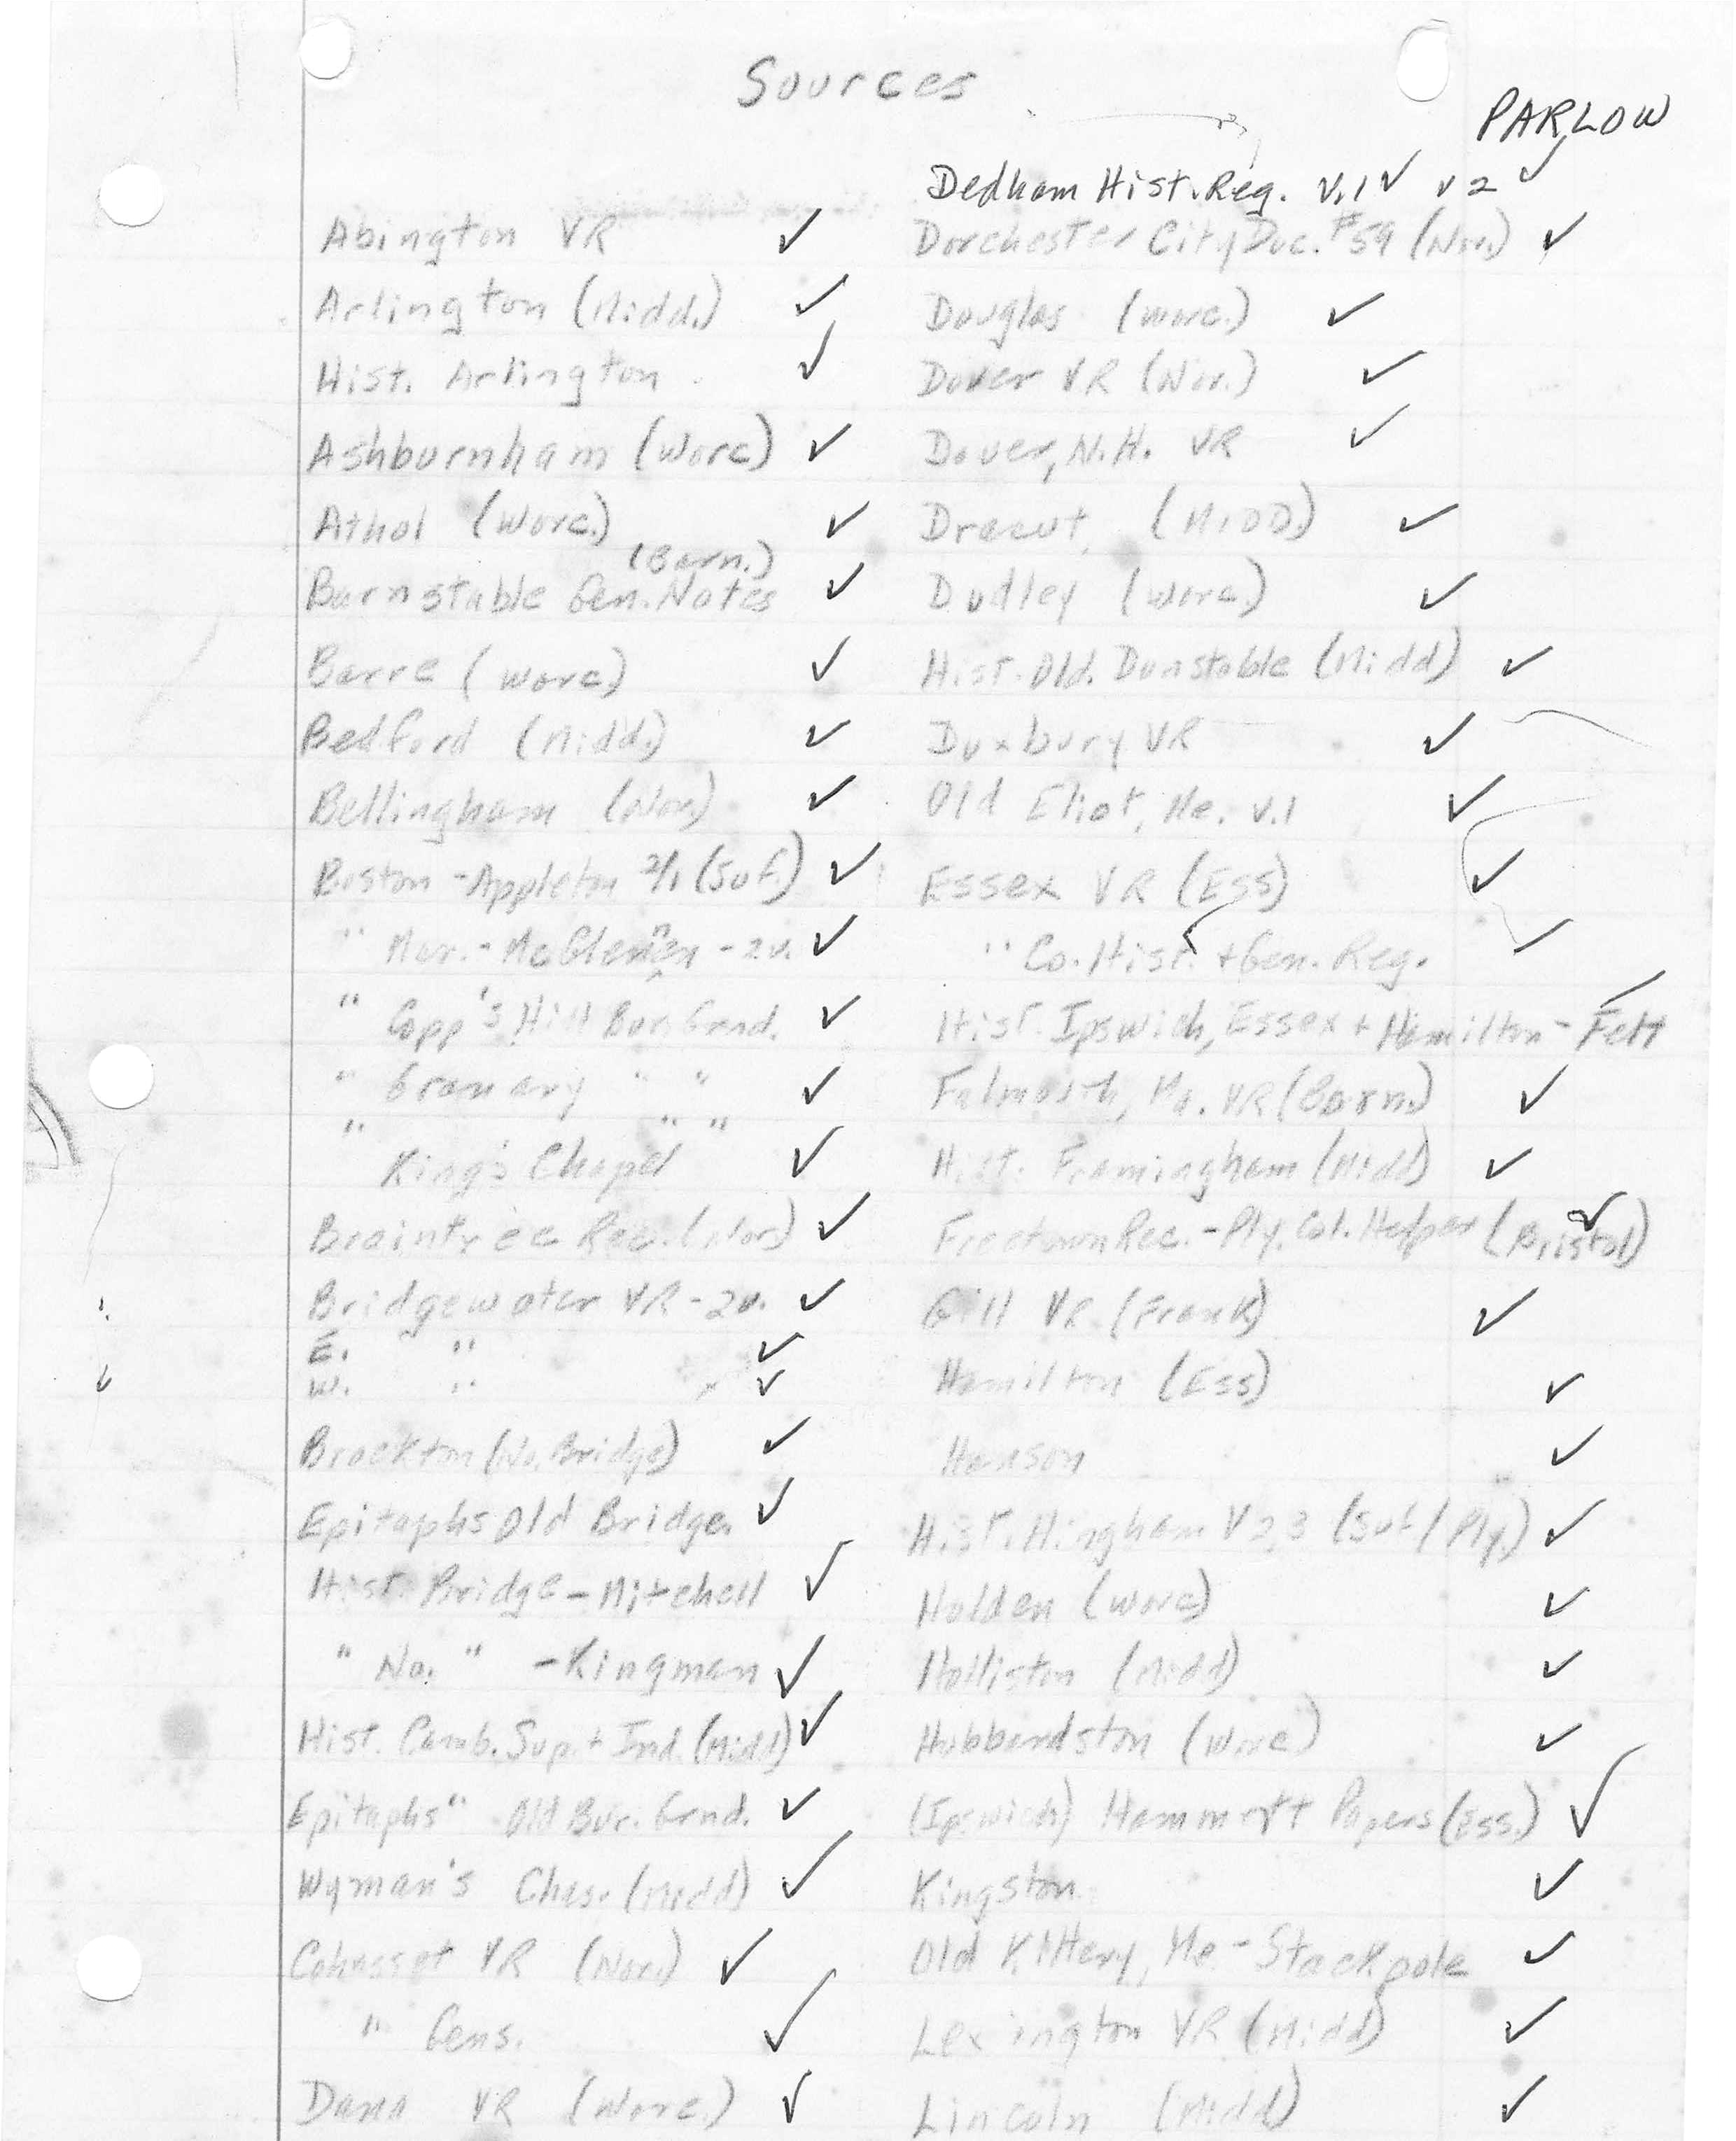 Sources
PARLOW
Dedham Hist. Reg. V.1 ✓ v 2 ✓
Abington VR ✓
Arlington (Midd.) ✓
Hist. Arlington ✓
Ashburnham (Worc) ✓
Athol (Worc.) ✓
(Barn.)
Barnstable Gen. Notes ✓
Barre (Worc) ✓
Bedford (Midd.) ✓
Bellingham (Nor) ✓
Boston - Appleton 2/1 (Suf.) ✓
" Mar. - McGlenen - 2v. ✓
" Copp's Hill Bur. Grnd. ✓
" Granary " " ✓
" " "
King's Chapel ✓
Braintree Rec. (Nor) ✓
Bridgewater VR - 2v. ✓
E. " ✓
W. " ✓
Brockton (No. Bridge) ✓
Epitaphs Old Bridge. ✓
Hist. Bridge - Mitchell ✓
" No. " - Kingman ✓
Hist. Camb. Sup. + Ind. (Midd) ✓
Epitaphs " Old Bur. Grnd. ✓
Wyman's Chas. (Midd) ✓
Cohasset VR (Nor.) ✓
" Gens. ✓
Dana VR (Worc.) ✓
Dorchester City Doc. #59 (Nor.) ✓
Douglas (Worc.) ✓
Dover VR (Nor.) ✓
Dover, N.H. VR ✓
Dracut (MIDD.) ✓
Dudley (Worc.) ✓
Hist. Old. Dunstable (Midd) ✓
Duxbury VR ✓
Old Eliot, Me. v.1 ✓
Essex VR (Ess) ✓
" Co. Hist. + Gen. Reg. ✓
Hist. Ipswich, Essex + Hamilton - Felt ✓
Falmouth, Ma. VR (Barn.) ✓
Hist. Framingham (Midd) ✓
Freetown Rec. - Ply. Col. Helper (Bristol) ✓
Gill VR (Frank) ✓
Hamilton (Ess) ✓
Hanson ✓
Hist. Hingham V 2,3 (Suf / Ply.) ✓
Holden (Worc) ✓
Holliston (Midd) ✓
Hubbardston (Worc) ✓
(Ipswich) Hammatt Papers (Ess.) ✓
Kingston ✓
Old Kittery, Me - Stackpole ✓
Lexington VR (Midd) ✓
Lincoln (Midd) ✓